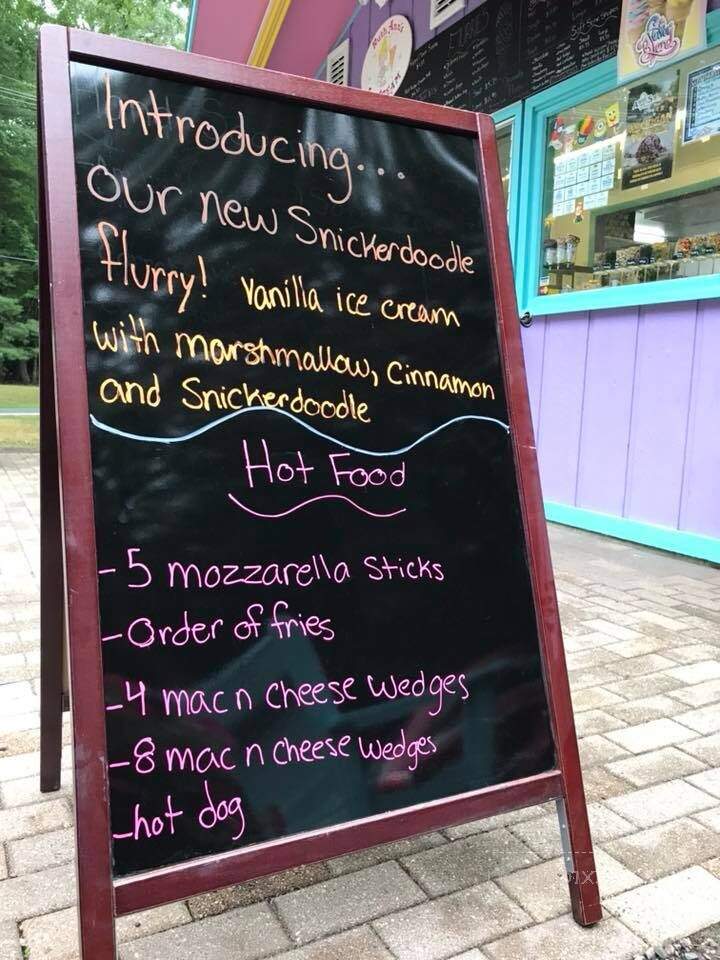 Introducing...
our new Snickerdoodle
flurry! Vanilla ice cream
with marshmallow, Cinnamon
and Snickerdoodle
Hot Food
-5 mozzarella Sticks
-Order of fries
-4 mac n cheese wedges
-8 mac n cheese wedges
-hot dog